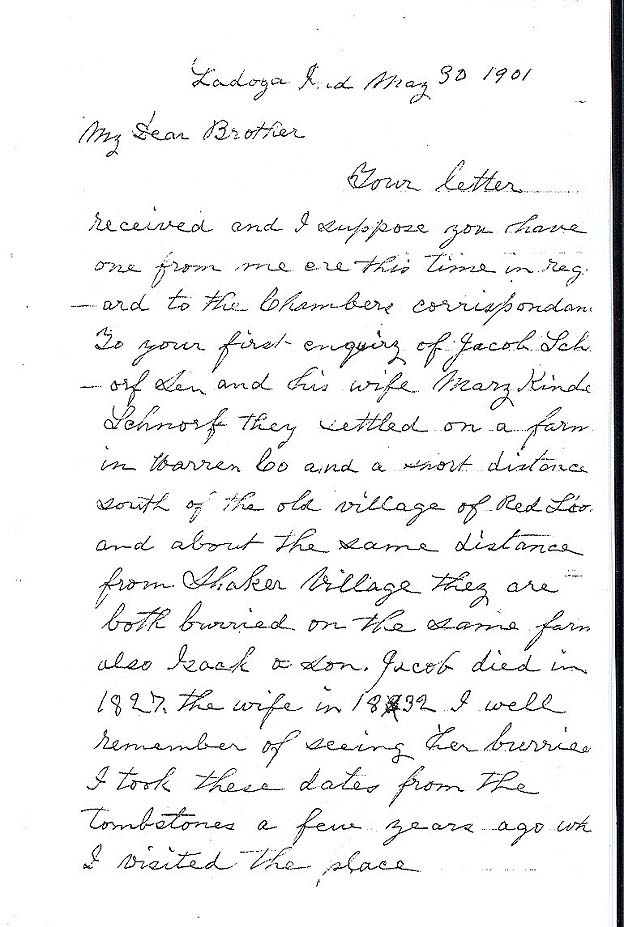 Ladoga Ind May 30 1901
My Dear Brother
Your letter
received and I suppose you have
one from me ere this time in reg
- ard to the Chambers corrispondan
To your first enquiry of Jacob Sch
- orf Sen and his wife Mary Kinde
Schnorf they settled on a farm
in Warren Co and a short distance
south of the old village of Red Lio
and about the same distance
from Shaker Village they are
both burried on the same farm
also Isack a son. Jacob died in
1827. the wife in 1832 I well
remember of seeing her burried
I took these dates from the
tombstones a few years ago wh
I visited the place